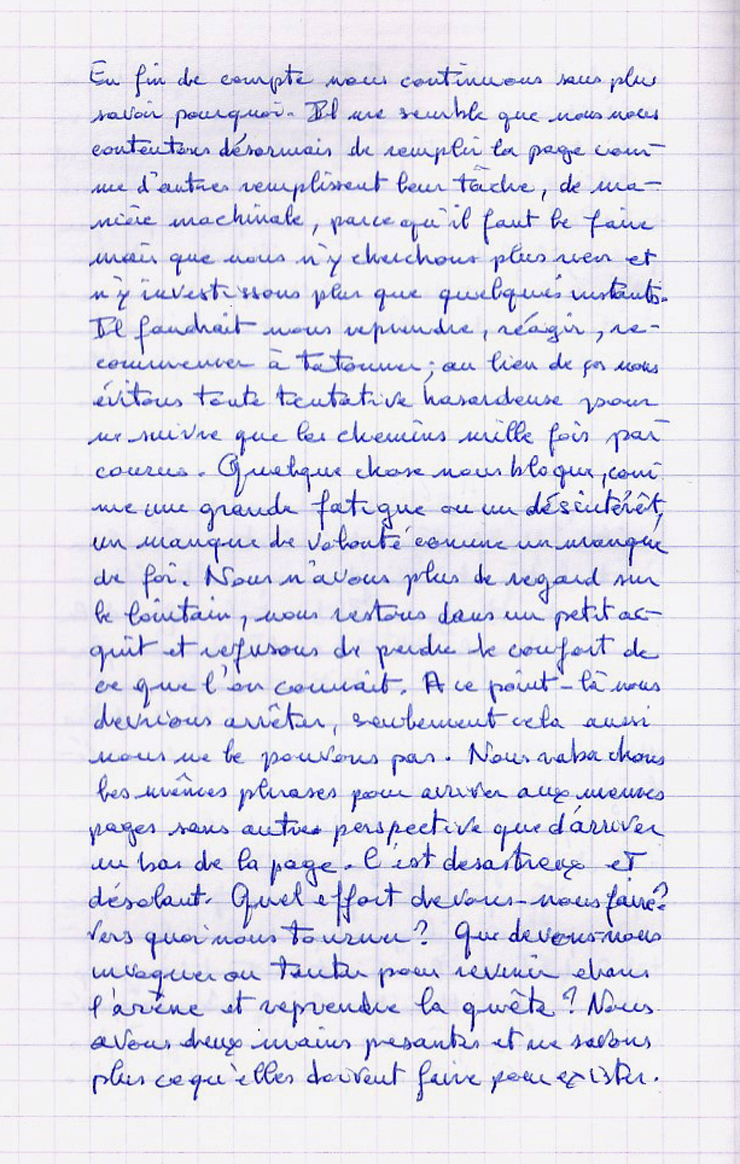 En fin de compte nous continuons sans plus
savoir pourquoi. Il me semble que nous nous
contentons désormais de remplir la page com-
me d'autres remplissent leur tâche, de ma-
nière machinale, parce qu'il faut le faire
mais que nous n'y cherchons plus rien et
n'y investissons plus que quelques instants.
Il faudrait nous reprendre, réagir, re-
commencer à tatonner; au lien de ça nous
évitons toute tentative hasardeuse pour
ne suivre que les chemins mille fois par
courus. Quelque chose nous bloque, com
me une grande fatigue ou un désintérêt,
un manque de volonté comme un manque
de foi. Nous n'avons plus de regard sur
le lointain, nous restons dans un petit ac-
quit et refusons de perdre le confort de
ce que l'on connait. A ce point-là nous
devrions arrêter, seulement cela aussi
nous ne le pouvons pas. Nous rabachons
les mêmes phrases pour arriver aux mêmes
pages sans autre perspective que d'arriver
en bas de la page. C'est desastreux et
désolant. Quel effort devons-nous faire?
Vers quoi nous tourner? Que devons-nous
invoquer ou tenter pour revenir dans
l'arène et reprendre la quête? Nous
avons deux mains pesantes et ne savons
plus ce qu'elles doivent faire pour exister.